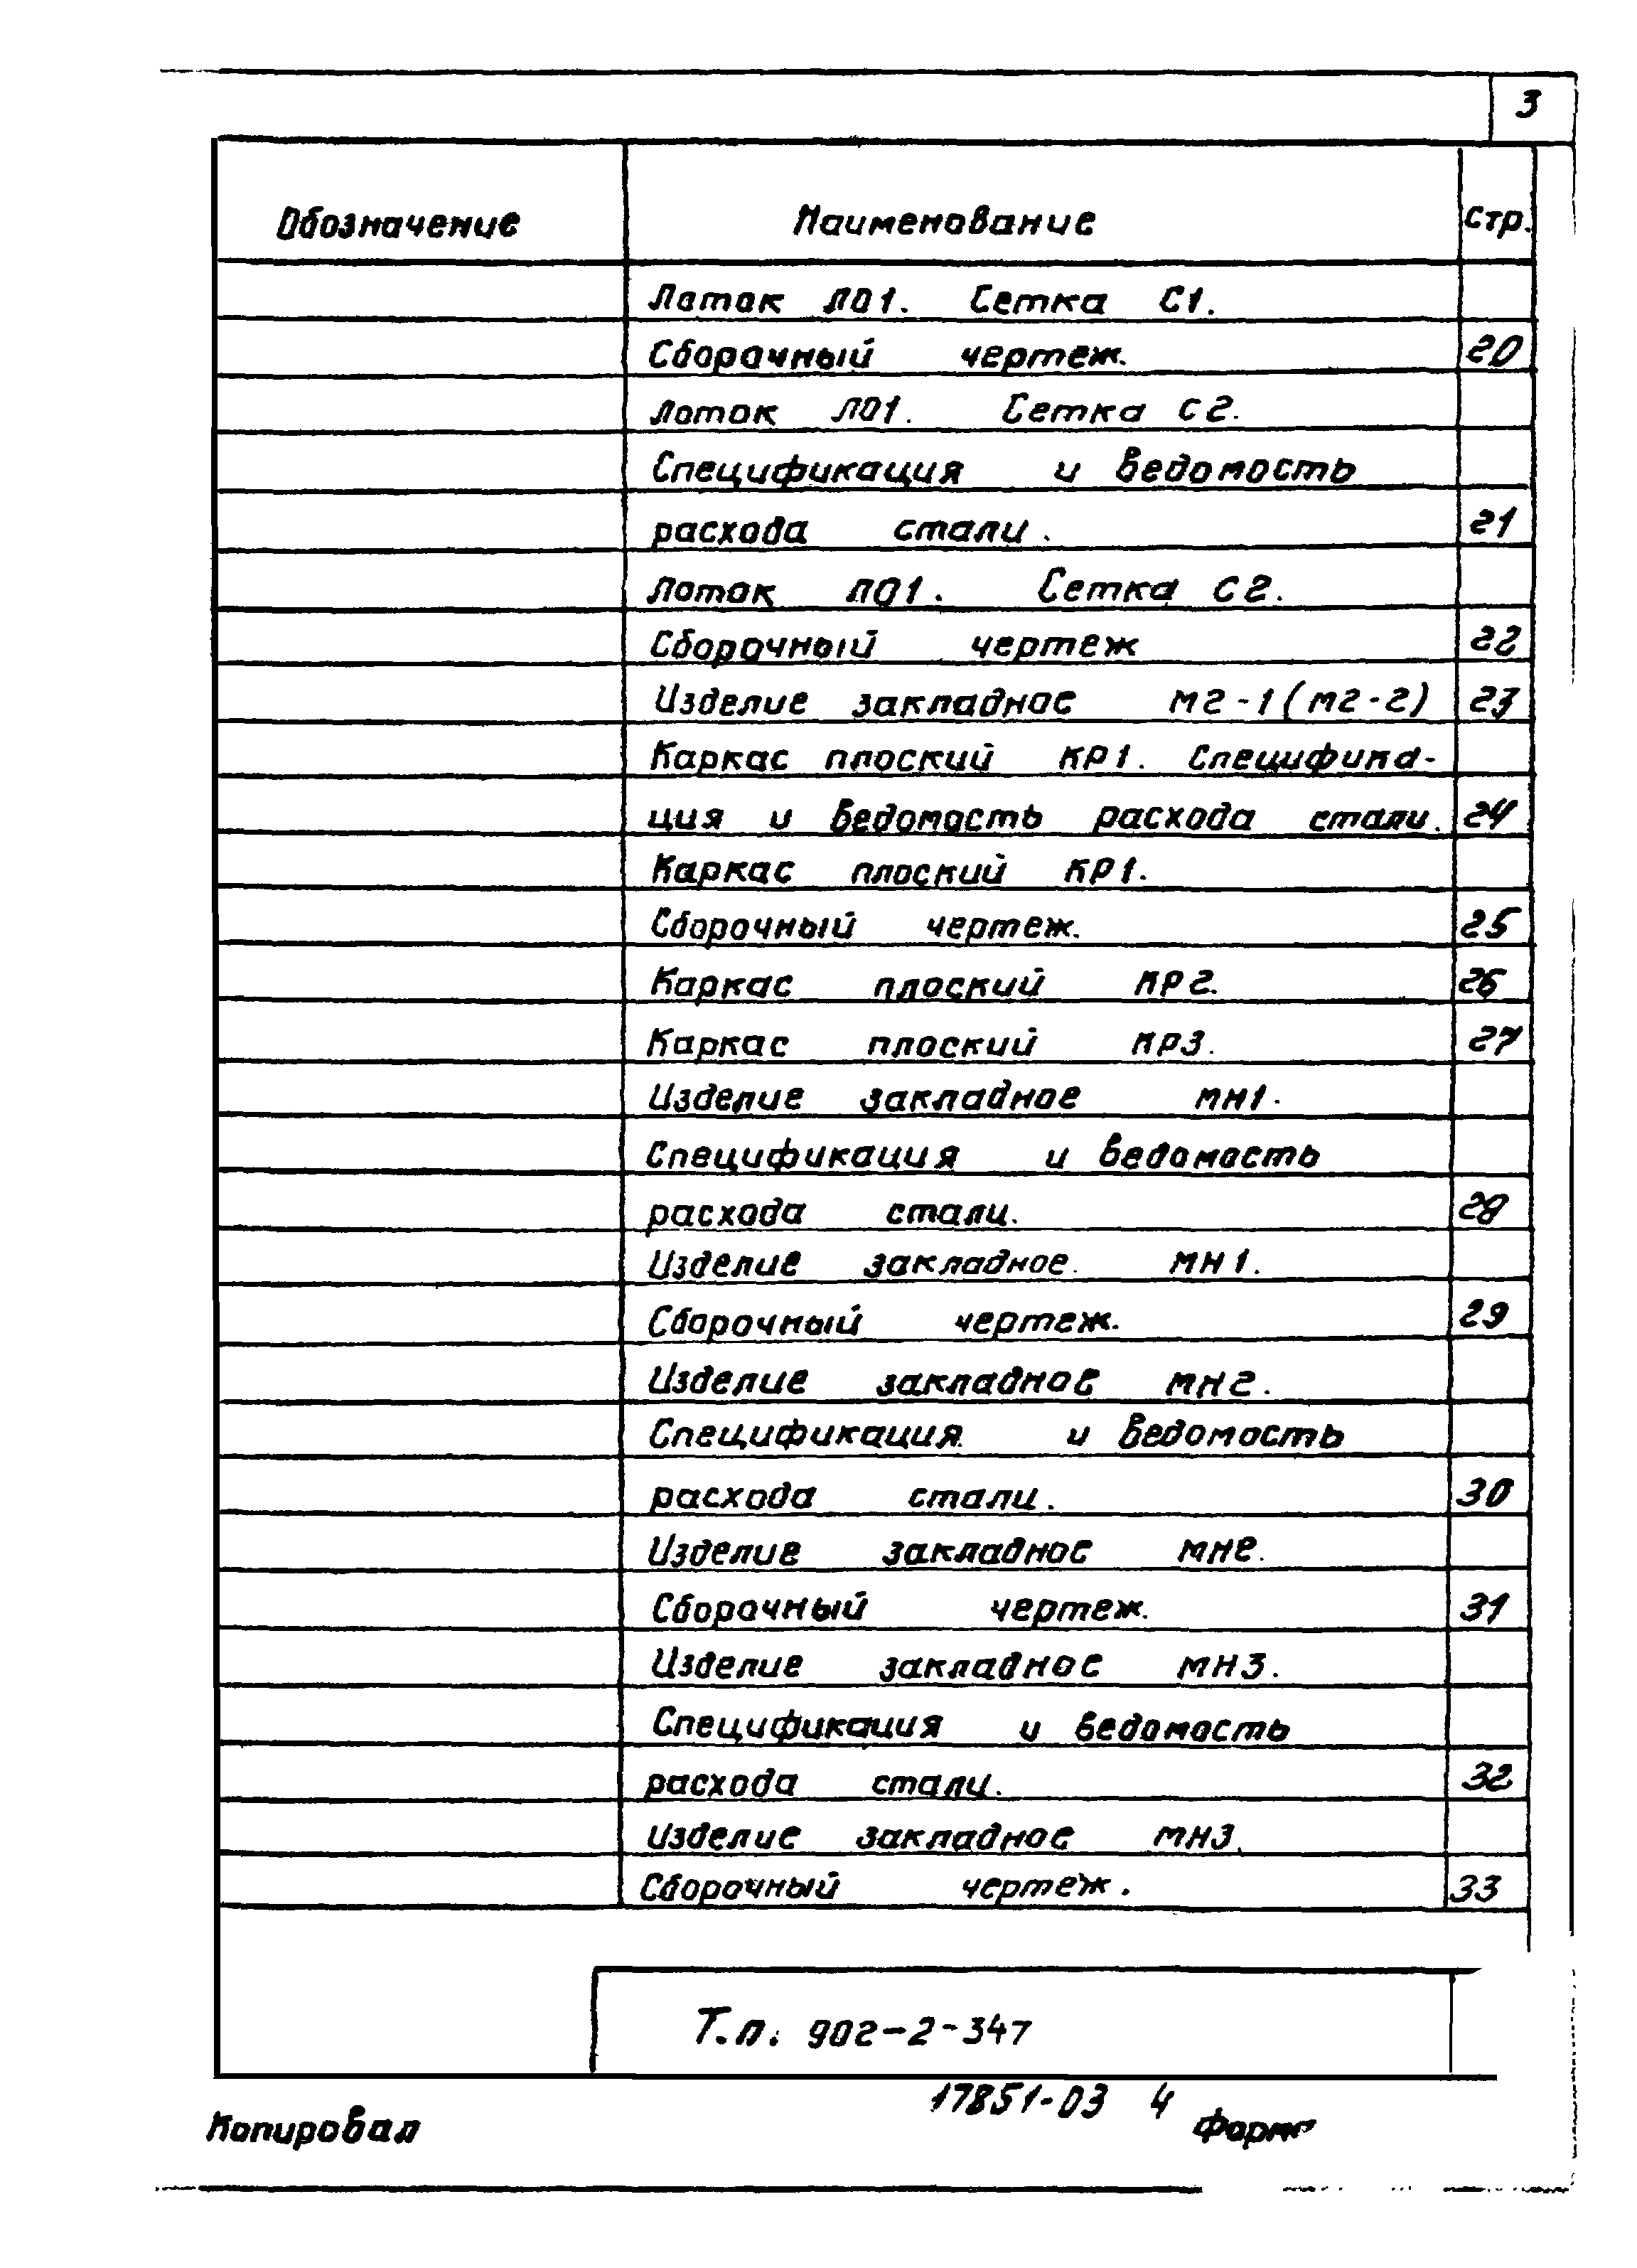 3
Обозначение Наименование Стр.
Лоток Л01. Сетка С1.
Сборочный чертеж. 20
Лоток Л01. Сетка С2.
Спецификация и ведомость
расхода стали. 21
Лоток Л01. Сетка С2.
Сборочный чертеж 22
Изделие закладное М2-1(М2-2) 23
Каркас плоский КР1. Специфика-
ция и ведомость расхода стали. 24
Каркас плоский КР1.
Сборочный чертеж. 25
Каркас плоский КР2. 26
Каркас плоский КР3. 27
Изделие закладное МН1.
Спецификация и ведомость
расхода стали. 28
Изделие закладное. МН1.
Сборочный чертеж. 29
Изделие закладное МН2.
Спецификация и ведомость
расхода стали. 30
Изделие закладное МН2.
Сборочный чертеж. 31
Изделие закладное МН3.
Спецификация и ведомость
расхода стали. 32
Изделие закладное МН3.
Сборочный чертеж. 33
Т.п. 902-2-347
17851-03 4
Копировал